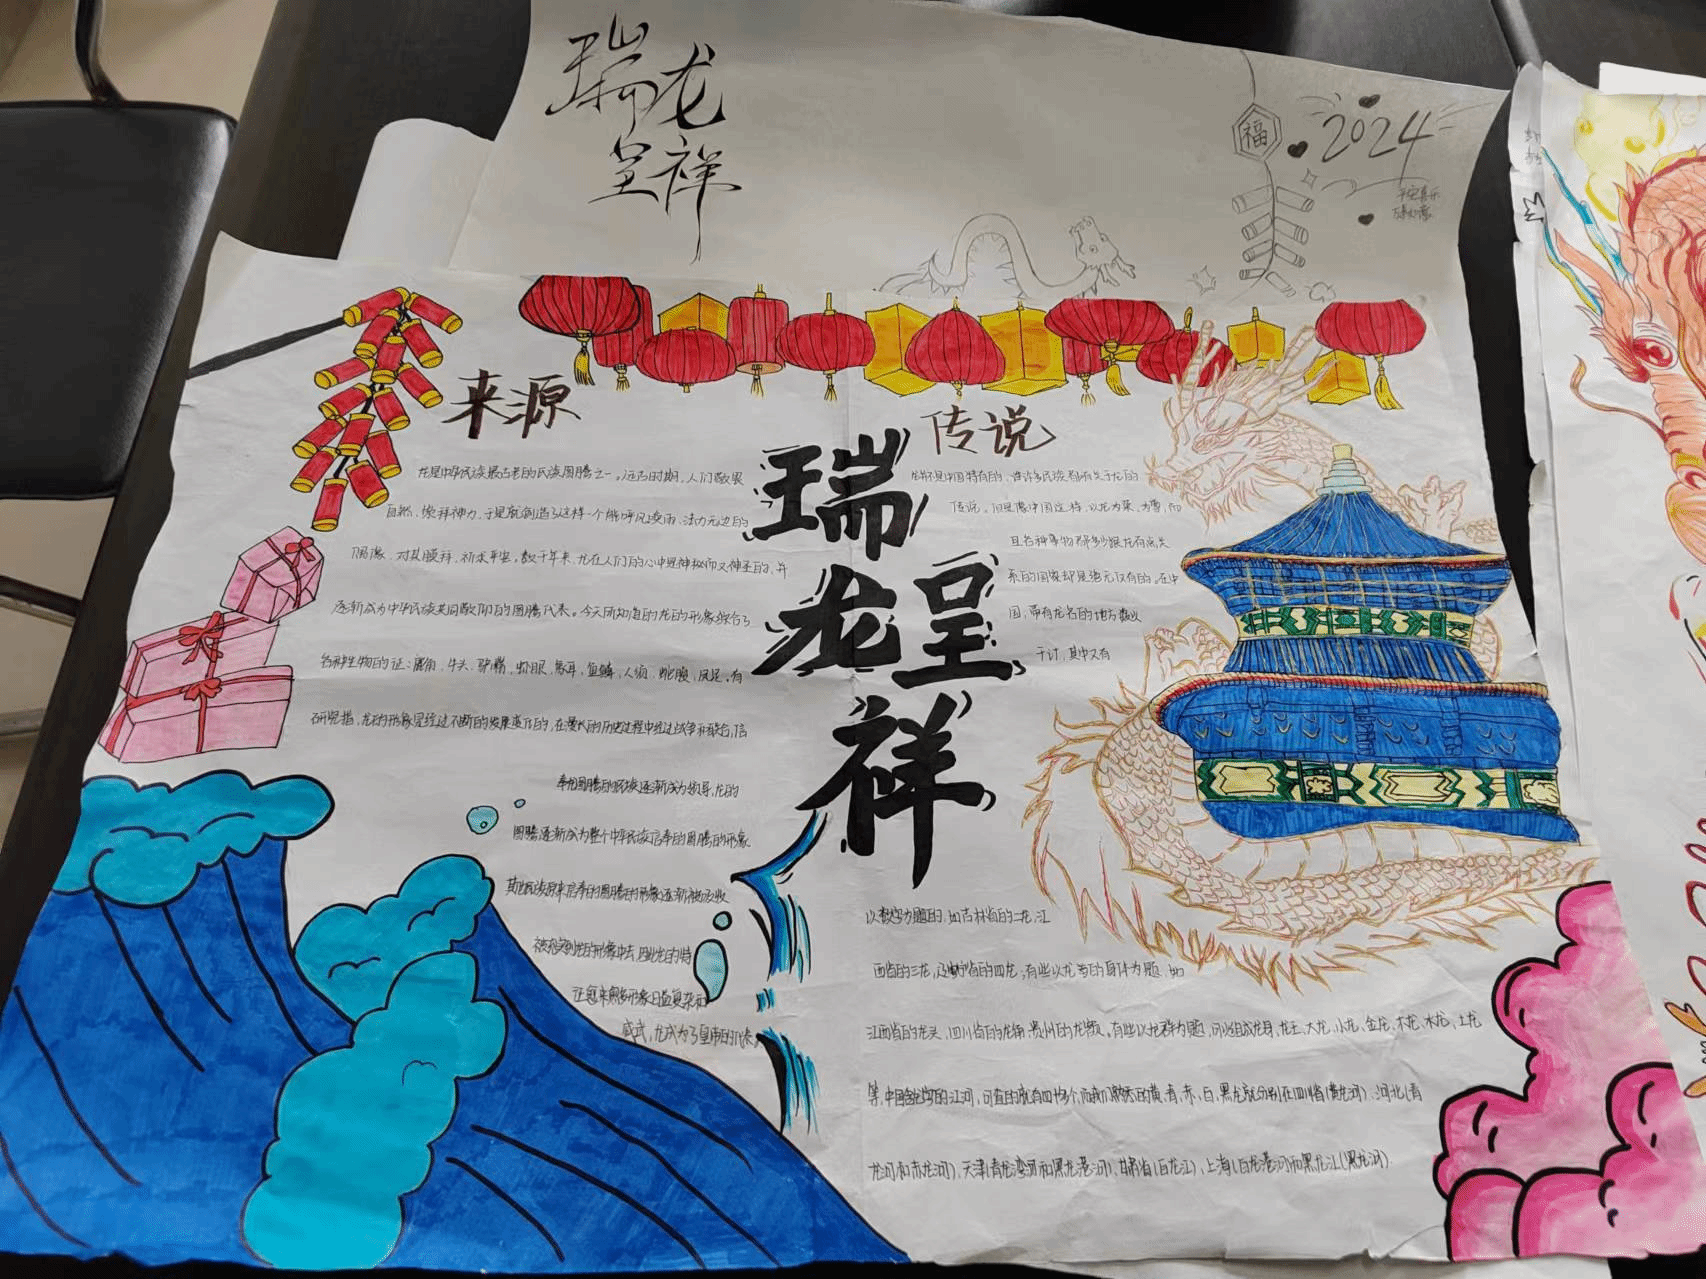 瑞龙
呈祥
福
2024
平安喜乐
万事如意
来源
龙是中华民族最古老的民族图腾之一。远古时期,人们敬畏
自然、崇拜神力,于是就创造了这样一个能呼风唤雨、法力无边的
偶像,对其膜拜,祈求平安。数千年来,龙在人们的心中是神秘而又神圣的,并
逐渐成为中华民族共同敬仰的图腾代表。今天所知道的龙的形象综合了
各种生物的特征:鹿角、牛头、驴嘴、虾眼、象耳、鱼鳞、人须、蛇腹、凤足。有
研究指,龙的形象是经过不断的发展变化的,在漫长的历史过程中经过战争和联合,信
奉龙图腾的民族逐渐成为领导,龙的
图腾逐渐成为整个中华民族信奉的图腾的形象
其他民族原来信奉的图腾的形象逐渐被吸收
被融到龙的形象中去,因此龙的特
征愈来愈多形象日益复杂和
威武,龙成为了皇帝的代表
瑞
龙呈
祥
传说
龙并不是中国特有的,许许多民族都有关于龙的
传说。但是像中国这样,以龙为荣、为尊,而
且各种事物都多少跟龙有点关
系的国家却是绝无仅有的。在中
国,带有龙名的地方数以
千计,其中又有
以数字为题的,如吉林省的二龙,江
西省的三龙,
省的四龙,有些以龙
的身体为题,如
江西省的龙头,四川省的龙角,贵州的龙
。有些以龙群为题,可以组成龙身,龙王、大龙、小龙、金龙、木龙、水龙、土龙
等,中国
的江河,可查的就有四十多个,而我们熟悉的黄、青、赤、白、黑龙就分别在四川省(黄龙河)、河北(青
龙河和赤龙河)、天津(青龙湾河和黑龙港河)、甘肃省(白龙江)、上海(白龙港河和黑龙江(黑龙河).